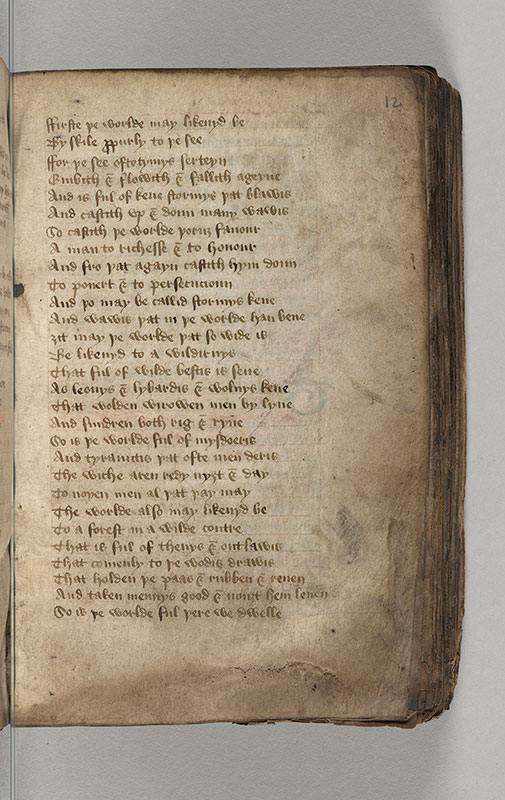 12
ffirste þe worlde may likenyd be
By skile ꝓpurly to þe see
ffor þe see oftetymys serteyn
Ebbith & flowith & fallith ageyne
And is ful of kene stormys þat blawis
And castith vp & doun many wawis
So castith þe worlde þoruȝ fauour
A man to richesse & to honour
And fro þat agayn castith hym doun
To pouert & to persecucioun
And þo may be callid stormys kene
And wawis þat in þe worlde han bene
ȝit may þe worlde þat so wide is
Be likenyd to a wildirnys
That ful of wilde bestis is sene
As leonys & lybardis & wolnys kene
That wolden wirowen men by lyue
And sindren both rig & ryue
So is þe worlde ful of mysdoeris
And tyrauntis þat ofte men deris
The wiche aren redy nyȝt & day
To noyen men al þat þay may
The worlde also may likenyd be
To a forest in a wilde contre
That is ful of theuys & outlawis
That comenly to þe wodis drawis
That holden þe paas & rubben & reuen
And taken mennys good & nouȝt hem leuen
So is þe worlde ful þere we dwelle